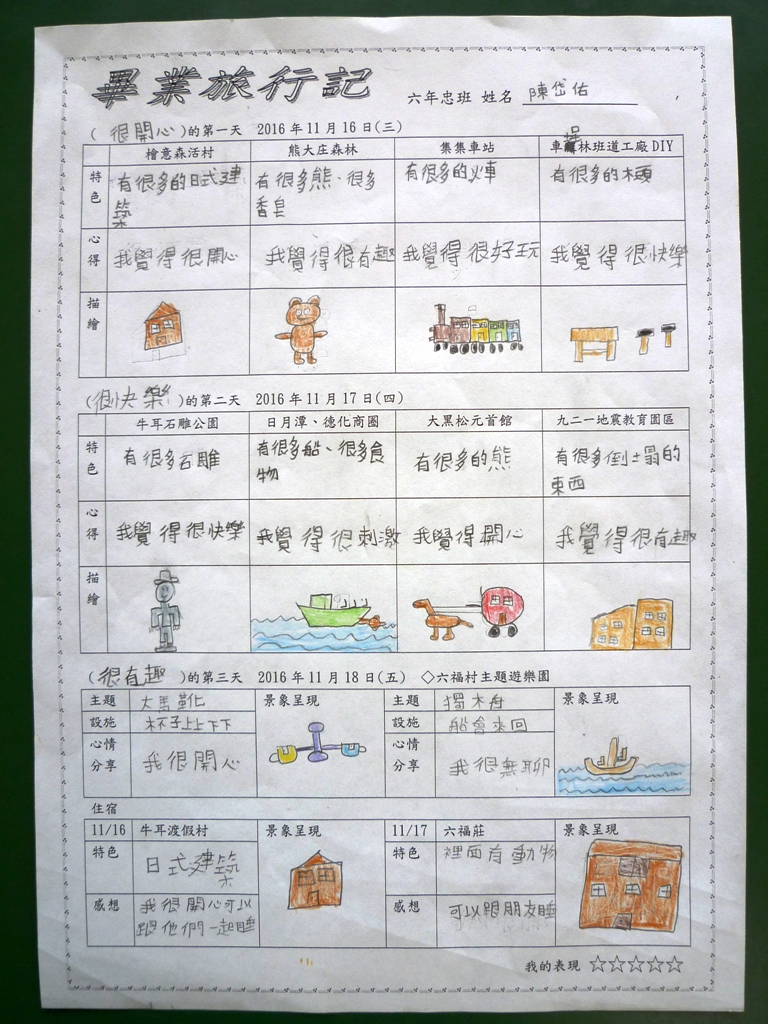 畢業旅行記
六年忠班 姓名 陳岱佑
( 很開心 )的第一天 2016年11月16日(三)
檜意森活村 熊大庄森林 集集車站 車埕林班道工廠DIY
特色 有很多的日式建築 有很多熊、很多香皂 有很多的火車 有很多的木頭
心得 我覺得很開心 我覺得很有趣 我覺得很好玩 我覺得很快樂
描繪
(很快樂 )的第二天 2016年11月17日(四)
牛耳石雕公園 日月潭、德化商圈 大黑松元首館 九二一地震教育園區
特色 有很多石雕 有很多船、很多食物 有很多的熊 有很多倒土塌的東西
心得 我覺得很快樂 我覺得很刺激 我覺得開心 我覺得很有趣
描繪
(很有趣 )的第三天 2016年11月18日(五) ◇六福村主題遊樂園
主題 大馬靴 景象呈現 主題 獨木舟 景象呈現
設施 杯子上上下下 設施 船會來回
心情分享 我很開心 心情分享 我很無聊
住宿
11/16 牛耳渡假村 景象呈現 11/17 六福莊 景象呈現
特色 日式建築 特色 裡面有動物
感想 我很開心可以 感想 可以跟朋友睡
跟他們一起睡
我的表現 ☆☆☆☆☆